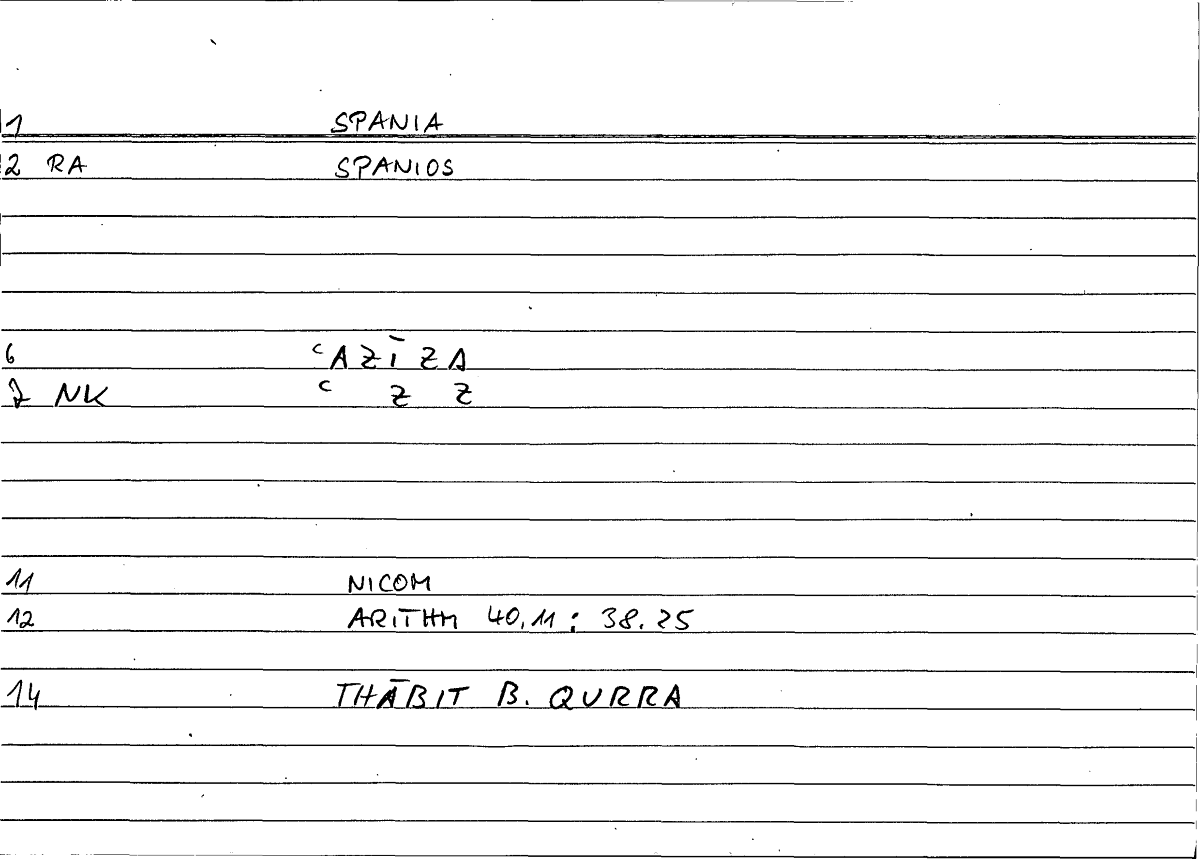 1 SPANIA
2 RA SPANIOS
6 ʿAZĪZA
7 NK ʿ Z Z
11 NICOM
12 ARITHM 40,11 : 38.25
14 THĀBIT B. QURRA